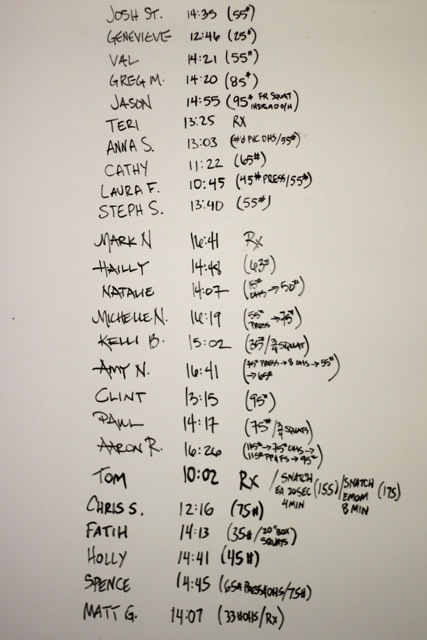 JOSH ST. 14:35 (55#)
GENEVIEVE 12:46 (25#)
VAL 14:21 (55#)
GREG M. 14:20 (85#)
JASON 14:55 (95# FR SQUAT
INSTEAD O/H)
TERI 13:25 RX
ANNA S. 13:03 (PVC OHS/55#)
CATHY 11:22 (65#)
LAURA F. 10:45 (45# PRESS/55#)
STEPH S. 13:40 (55#)
MARK N 16:41 RX
HAILLY 14:48 (63#)
NATALIE 14:07 (15# OHS → 50#)
MICHELLE N. 16:19 (55# PRESS → 75#)
KELLI B. 15:02 (35#/¾ SQUAT)
AMY N. 16:41 (75# PRESS → 8 OHS → 55#
→ 65#)
CLINT 13:15 (95#)
PAUL 14:17 (75#/¾ SQUATS)
AARON R. 16:26 (115# → 75# OHS →
115# PP & FS → 95#)
TOM 10:02 RX / SNATCH EA 20SEC 4MIN (155) / SNATCH EMOM 8 MIN (175)
CHRIS S. 12:16 (75#)
FATIH 14:13 (35#/20" BOX SQUATS)
HOLLY 14:41 (45#)
SPENCE 14:45 (65# PRESS/OHS/75#)
MATT G. 14:07 (33# OHS/RX)